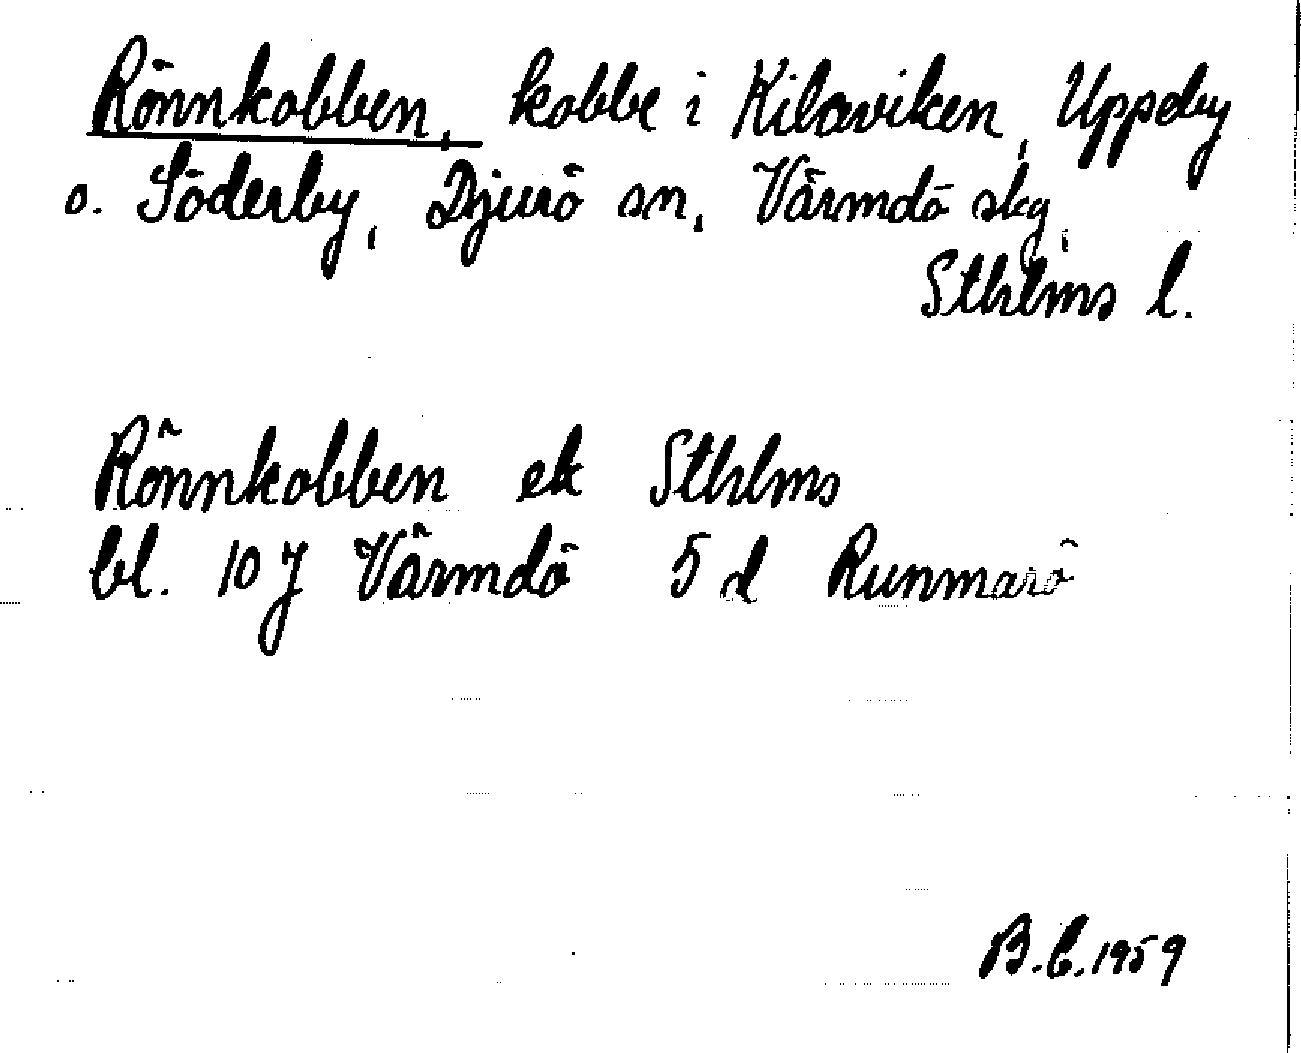 Rönnkobben, kobbe i Kilaviken, Uppeby
o. Söderby, Djurö sn, Värmdö skg,
Sthlms l.
Rönnkobben ek Sthlms
bl. 10 J Värmdö 5 d Runmarö
B.C. 1959